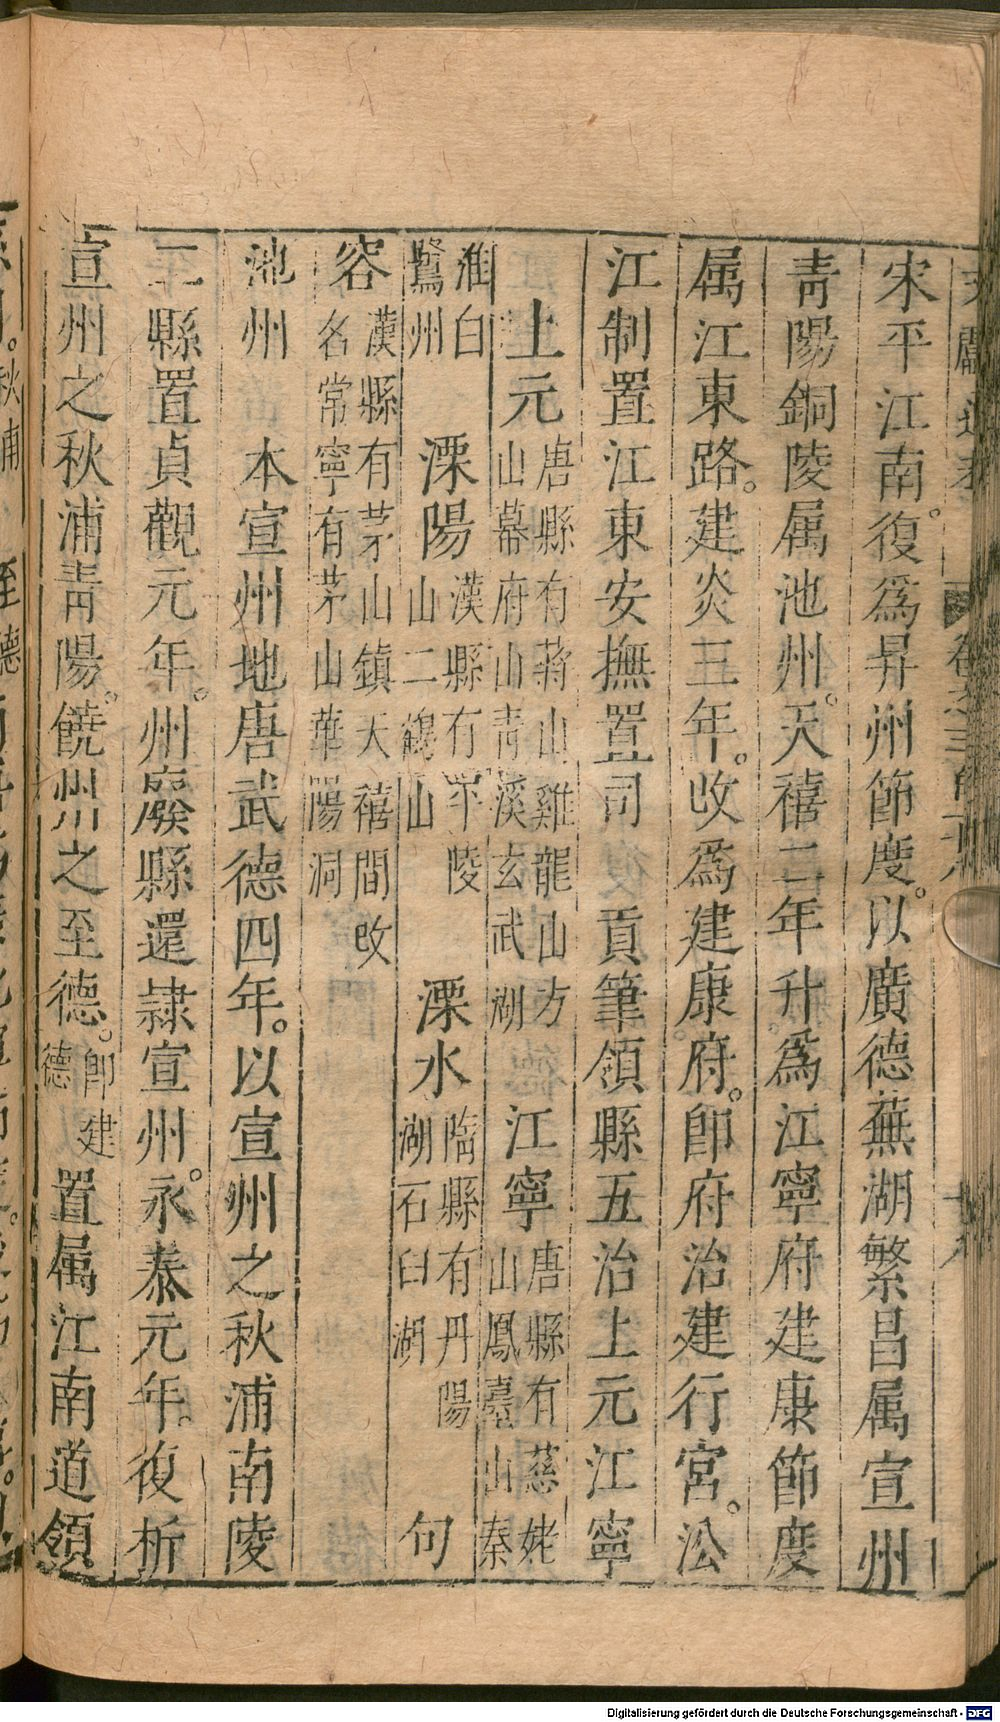 宋平江南。復爲昇州節度。以廣德蕪湖繁昌属宣州
青陽銅陵属池州。天禧二年升爲江寧府建康節度
属江東路。建炎三年。改爲建康府。卽府治建行宮。㳂
江制置江東安撫置司 貢筆領縣五治上元江寧
上元 唐縣有蔣山雞龍山方山幕府山靑溪玄武湖 江寧 唐縣有慈姥山鳳臺山秦
淮白鷺州 溧陽 漢縣有平陵山二鶴山 溧水 臨縣有丹陽湖石臼湖 句
容 漢縣有茅山鎮天禧間改名常寧有茅山華陽洞
池州 本宣州地唐武德四年。以宣州之秋浦南陵
二縣置貞觀元年。州廢縣還隷宣州。永泰元年。復析
宣州之秋浦青陽。饒州之至德。卽建德置属江南道領
Digitalisierung gefördert durch die Deutsche Forschungsgemeinschaft - DFG